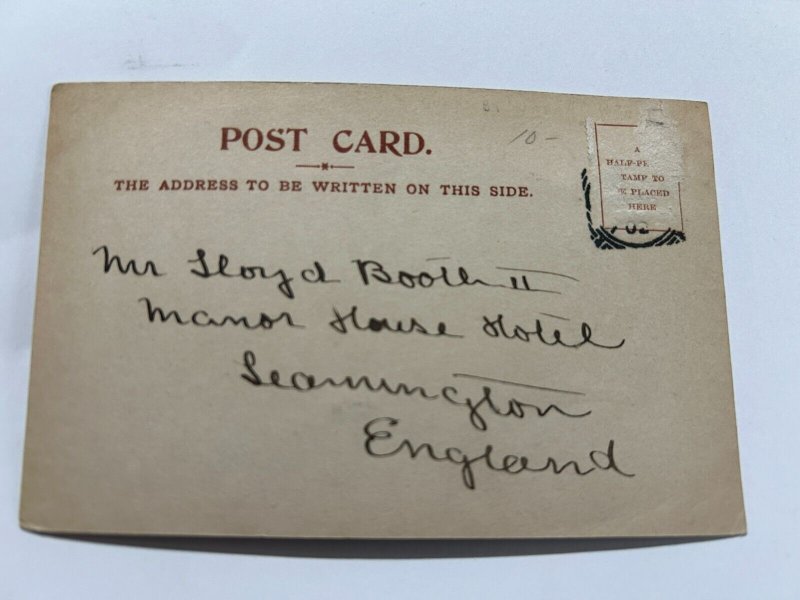 POST CARD.
10-
THE ADDRESS TO BE WRITTEN ON THIS SIDE.
A
HALF-PE
TAMP TO
E PLACED
HERE
Mr Lloyd Booth II
Manor House Hotel
Leamington
England